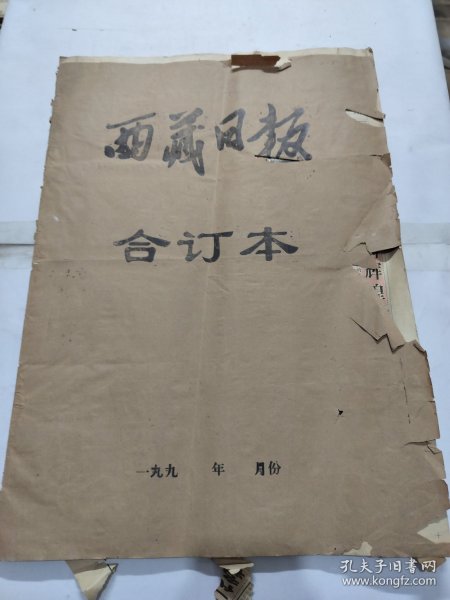 西藏日报
合订本
一九九 年 月份
孔夫子旧书网
www.kongfz.com